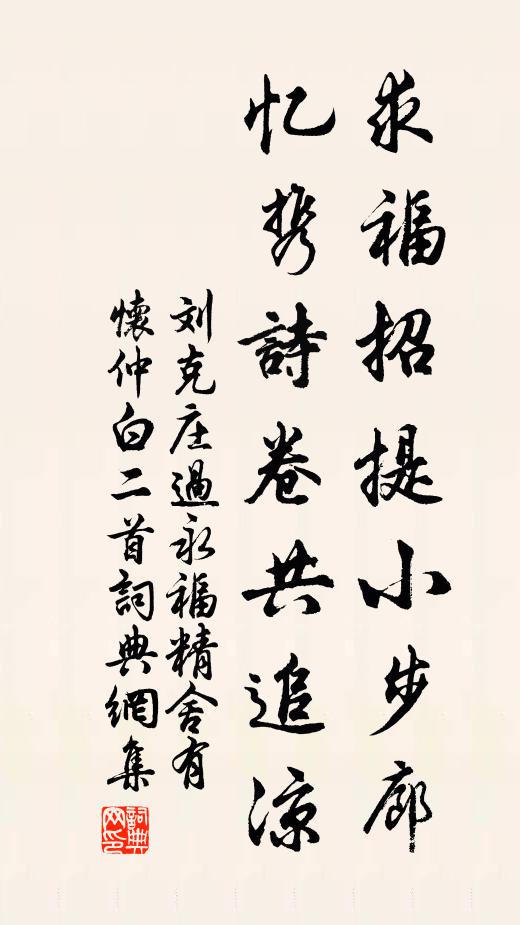 求福招提小步廊
忆携詩卷共追凉
刘克庄過永福精舍有
懷仲白二首詞典網集
詞典网印